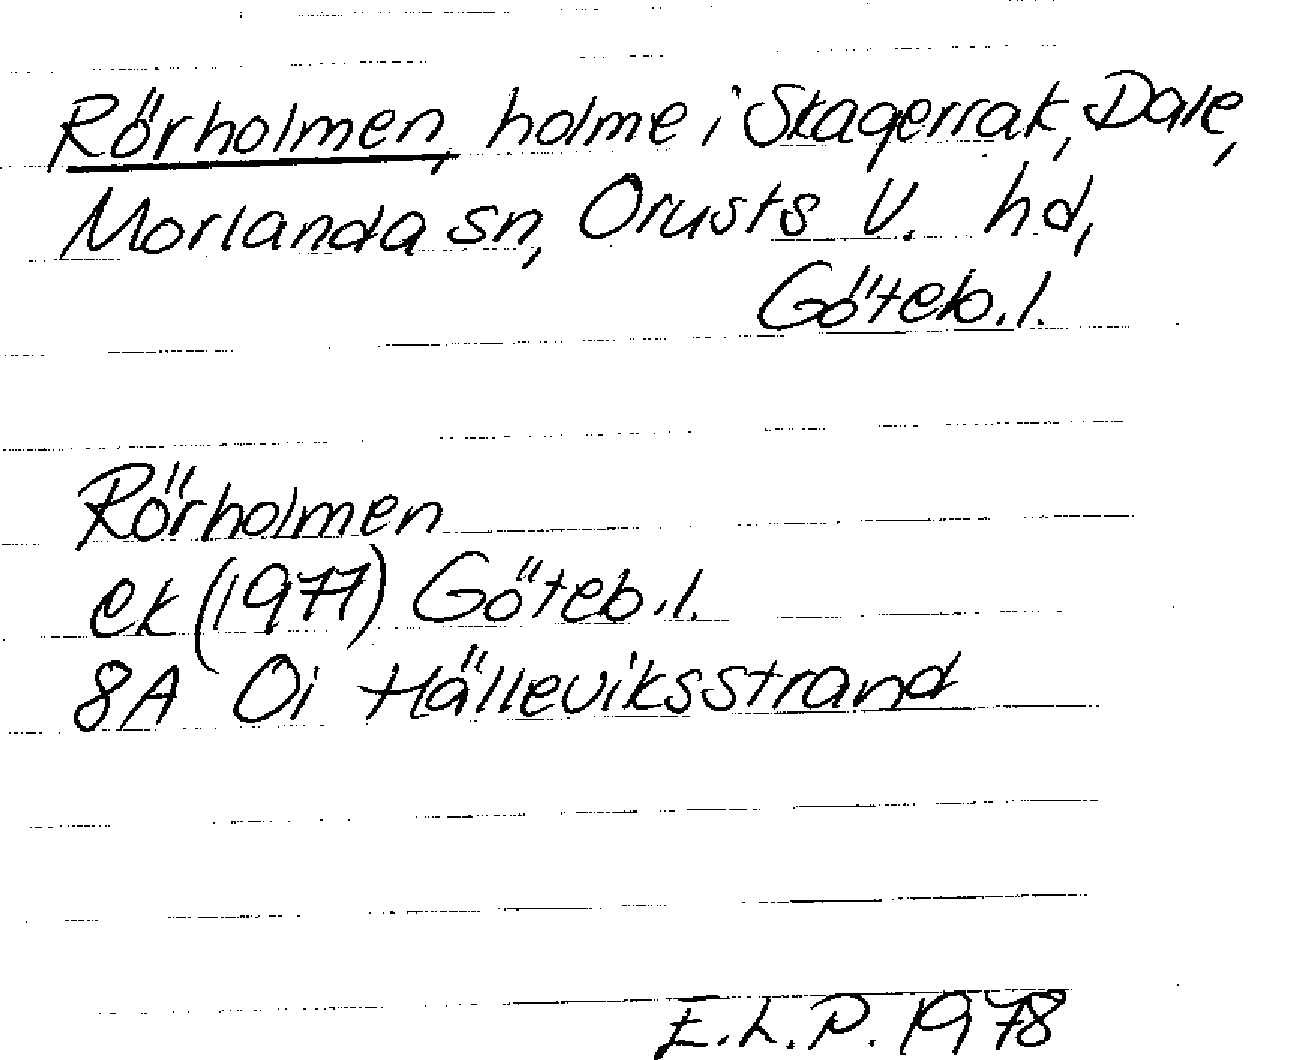 Rörholmen, holme i Skagerrak, Dale,
Morlanda sn, Orusts V. hd,
Göteb.l.
Rörholmen
ek (1977) Göteb.l.
8A 0i Hälleviksstrand
E.L.P. 1978